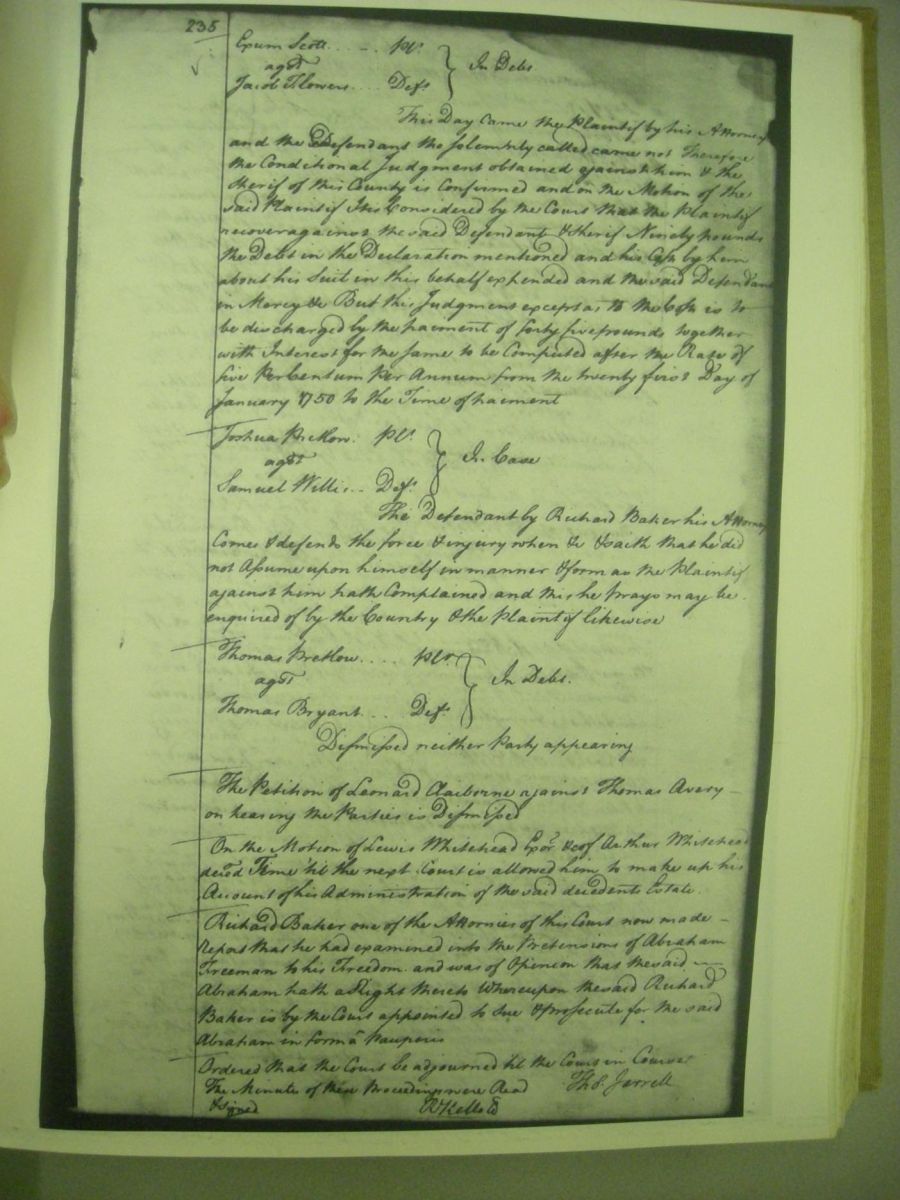 235
Exum Scott .. - .. plt
agst
Jacob Flowers .... Deft
} In Debt
This Day Came the Plaintif by his Attorney
and the Defendant tho Solemnly called came not Therefore
the Conditional Judgment obtained against him & the
Sherif of this County is Confirmed and on the Motion of the
said Plaintif Itis Considered by the Court that the Plaintif
recover against the said Defendant & Sherif Ninety pounds
the Debt in the Declaration mentioned and his Costs by him
about his Suit in this behalf expended and the said Defendant
in Mercy &c But this Judgment except as to the Costs is to
be discharged by the paiment of forty five pounds together
with Interest for the same to be Computed after the Rate of
five Per Centum Per Annum from the twenty first Day of
January 1750 to the Time of paiment
Joshua Pretlow. plt
agst
Samuel Willis .. Deft
} In Case
The Defendant by Richard Baker his Attorney
Comes & defends the force & injury when &c & saith that he did
not Assume upon himself in manner & form as the Plaintif
against him hath Complained and this he Prays may be
enquired of by the Country & the Plaintif likewise
Thomas Pretlow .... plt
agst
Thomas Bryant ... Deft
} In Debt.
Dismissed neither Party appearing
The Petition of Leonard Claiborne against Thomas Avery -
on hearing the Parties is Dismissed
On the Motion of Lewis Whitehead Exor &c of Arthur Whitehead
decd Time 'til the next Court is allowed him to make up his
Account of his Administration of the said decedents Estate.
Richard Baker one of the Attornies of this Court now made -
report that he had examined into the Pretensions of Abraham
Freeman to his Freedom and was of Opinion that the said
Abraham hath a Right thereto Whereupon the said Richard
Baker is by the Court appointed to Sue & Prosecute for the said
Abraham in formâ Pauperis
Ordered that the Court be adjourned til the Court in Course
The Minute of these Proceedings were Read
& signed
Thos. Jarrell
R Kello